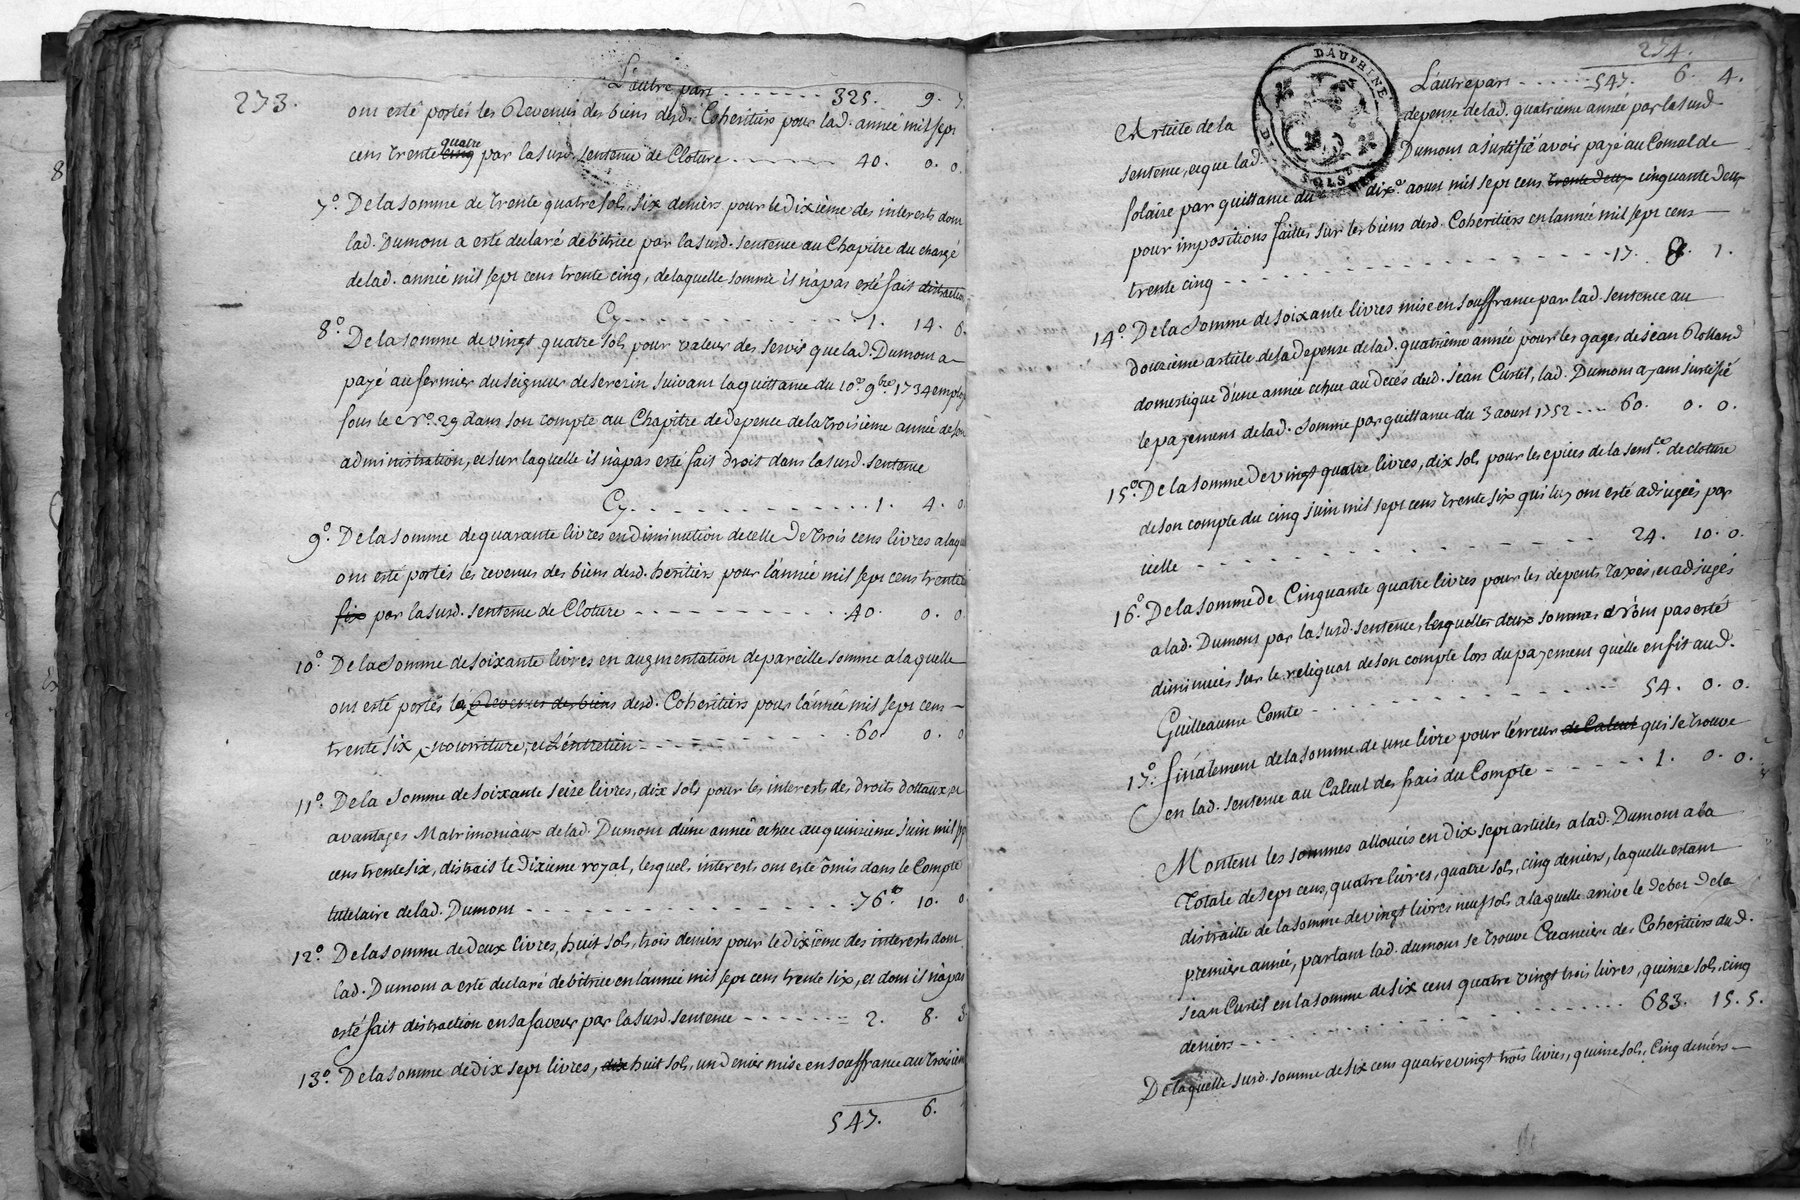 273.
L'autre part ------- 325. 9. 7.
ont esté portés les Revenus des biens desd. Cohéritiers pour lad. année mil sept
cens trente cinq quatre par la susd. sentence de Cloture ------- 40. 0. 0.
7°. De la somme de trente quatre sols, six deniers pour le dixième des interests dont
lad. Dumont a esté declaré debitrice par la susd. sentence au Chapitre du chargé
de lad. année mil sept cens trente cinq, de laquelle somme il n'a pas esté fait distraction
Cy ------- 1. 14. 6.
8°. De la somme de vingt quatre sols pour valeur des servis que lad. Dumont a
payé au fermier du seigneur de Severin suivant la quittance du 10e. 9bre. 1734 employé
sous le N°. 29 dans son compte au Chapitre de depence de la troisième année de son
administration, et sur laquelle il n'a pas esté fait droit dans la susd. sentence
Cy ------- 1. 4. 0
9°. De la somme de quarante livres en diminution de celle de trois cens livres a laqu
ont esté portés les revenus des biens desd. heritiers pour l'année mil sept cens trente
six par la susd. sentence de Cloture ------- 40. 0. 0
10°. De la somme de soixante livres en augmentation de pareille somme a laquelle
ont esté portés les Revenus des biens desd. Cohéritiers pour l'année mil sept cens
trente six nourriture, et l'entretien ------- 60. 0. 0
11°. De la somme de soixante seize livres, dix sols pour les interests des droits dottaux et
avantages Matrimoniaux de lad. Dumont d'une année echue au quinzième juin mil sept
cens trente six, distrait le dixième royal, lesquels interests ont esté omis dans le Compte
tutelaire de lad. Dumont ------- 76. 10. 0
12°. De la somme de deux livres, huit sols, trois deniers pour le dixième des interests dont
lad. Dumont a esté declaré debitrice en l'année mil sept cens trente six, et dont il n'a pas
esté fait distraction en sa faveur par la susd. sentence ------- 2. 8. 3
13°. De la somme de dix sept livres, dix huit sols, un denier mise en souffrance au troisièm
547. 6.
274.
L'autre part ------- 547. 6. 4.
DAUPHINE
SOLS
Article de la depense de lad. quatrième année par la susd.
sentence, et que lad. Dumont a justifié avoir payé au Consul de
solaise par quittance du dixe. aoust mil sept cens trente deux cinquante deux
pour impositions faittes sur les biens desd. Cohéritiers en l'année mil sept cens
trente cinq ------- 17. 8. 1.
14°. De la somme de soixante livres mise en souffrance par lad. sentence au
douzième article de la depense de lad. quatrième année pour les gages de jean Rolland
domestique d'une année echue au decés dud. jean Curtil, lad. Dumont ayant justifié
le payement de lad. somme par quittance du 3 aoust 1752 --- 60. 0. 0.
15°. De la somme de vingt quatre livres, dix sols pour les epices de la sentce. de cloture
de son compte du cinq juin mil sept cens trente six qui luy ont esté adjugées par
icelle ------- 24. 10. 0.
16°. De la somme de Cinquante quatre livres pour les depents taxés, et adjugés
a lad. Dumont par la susd. sentence, lesquelles deux sommes n'ont pas esté
diminuées sur le reliquat de son compte lors du payement qu'elle en fit aud.
Guilleaume Comte ------- 54. 0. 0.
17°. finalement de la somme de une livre pour l'erreur de Calcul qui se trouve
en lad. sentence au Calcul des frais du Compte ------- 1. 0. 0.
Montent les sommes allouées en dix sept articles a lad. Dumont a la
Totale de sept cens, quatre livres, quatre sols, cinq deniers, laquelle estant
distraitte de la somme de vingt livres neuf sols a laquelle arrive le debet de la
première année, partant lad. dumont se trouve Creancière des Cohéritiers dud.
jean Curtil en la somme de six cens quatre vingt trois livres, quinze sols, cinq
deniers ------- 683. 15. 5.
De laquelle susd. somme de six cens quatre vingt trois livres, quinze sols, Cinq deniers